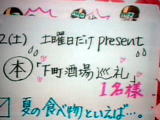 2(土) 土曜日だけpresent
本 「下町酒場巡礼」
1名様
夏の食べ物といえば…。